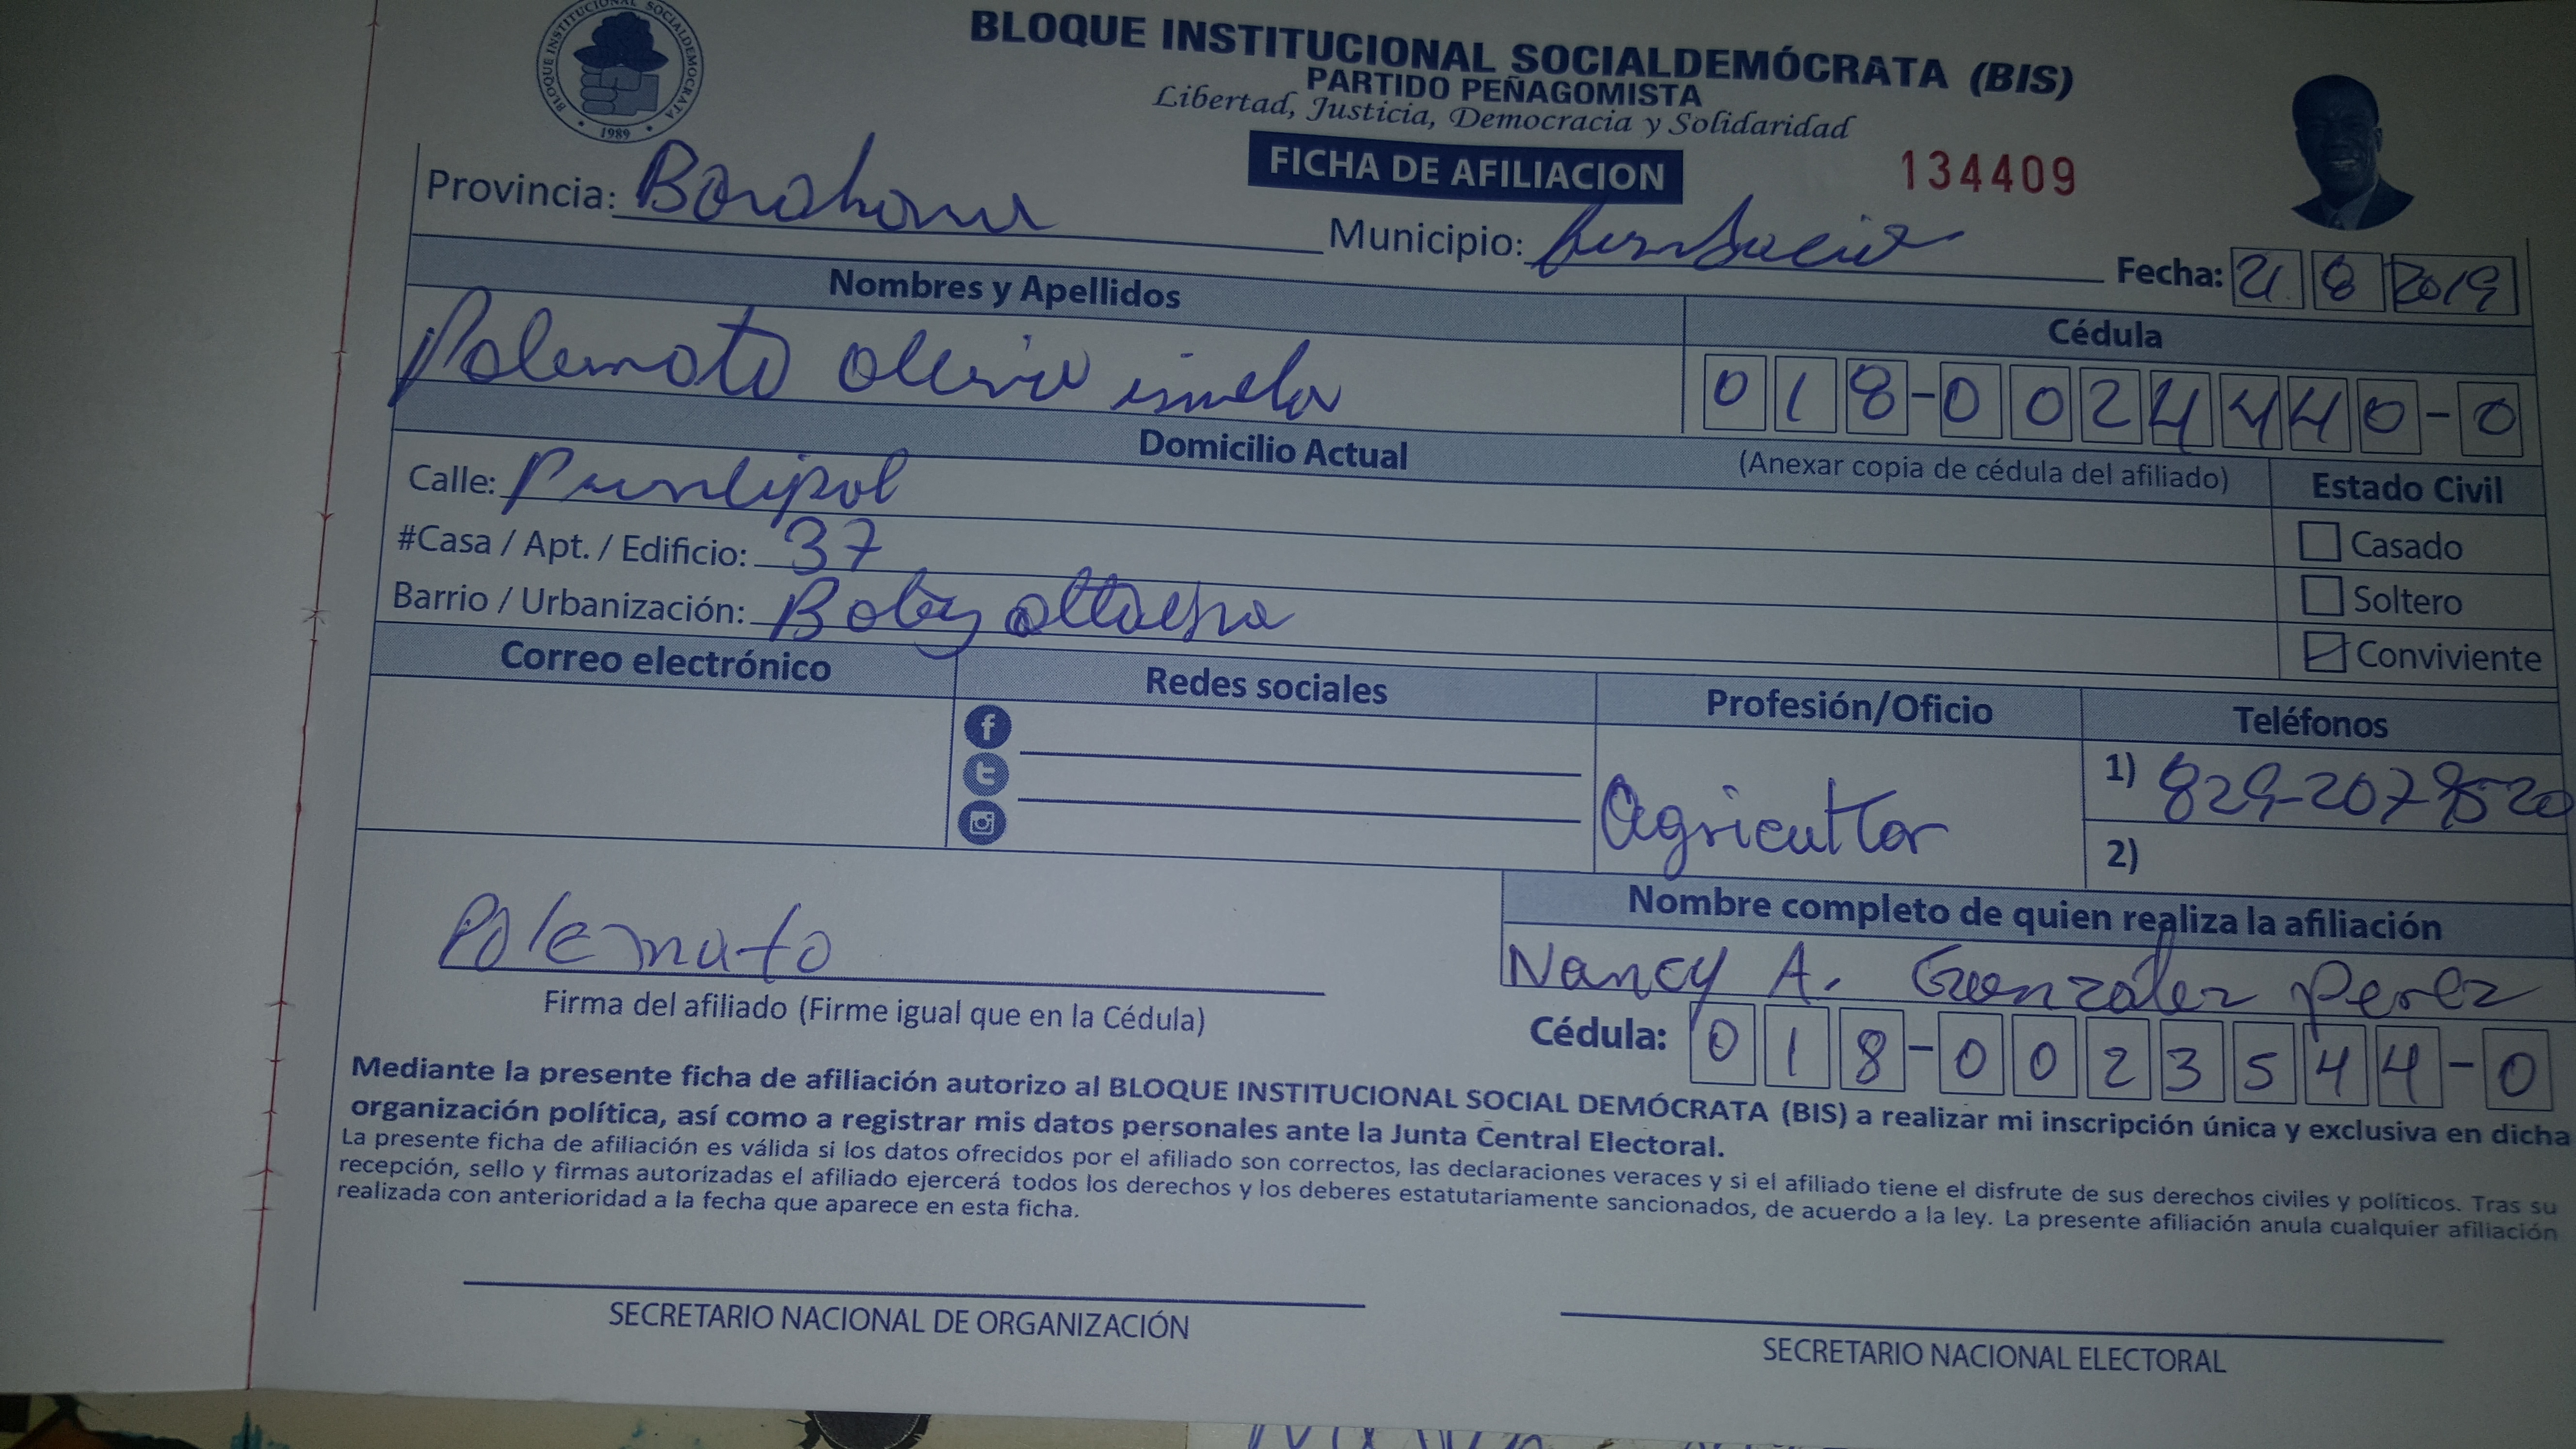 BLOQUE INSTITUCIONAL SOCIALDEMOCRATA
1989
BLOQUE INSTITUCIONAL SOCIALDEMÓCRATA (BIS)
PARTIDO PEÑAGOMISTA
Libertad, Justicia, Democracia y Solidaridad
FICHA DE AFILIACION
134409
Provincia: Barahona
Municipio: fundacion
Fecha: 21 8 2019
Nombres y Apellidos
Cédula
Polemoto
018-0024440-0
Domicilio Actual
(Anexar copia de cédula del afiliado)
Estado Civil
Calle: Principal
Casado
#Casa / Apt. / Edificio: 37
Soltero
Barrio / Urbanización: Batey
Conviviente
Correo electrónico
Redes sociales
Profesión/Oficio
Teléfonos
1) 829-207 9520
Agricultor
2)
Nombre completo de quien realiza la afiliación
Polemato
Nancy A. Gonzalez Perez
Firma del afiliado (Firme igual que en la Cédula)
Cédula: 018-0023544-0
Mediante la presente ficha de afiliación autorizo al BLOQUE INSTITUCIONAL SOCIAL DEMÓCRATA (BIS) a realizar mi inscripción única y exclusiva en dicha
organización política, así como a registrar mis datos personales ante la Junta Central Electoral.
La presente ficha de afiliación es válida si los datos ofrecidos por el afiliado son correctos, las declaraciones veraces y si el afiliado tiene el disfrute de sus derechos civiles y políticos. Tras su
recepción, sello y firmas autorizadas el afiliado ejercerá todos los derechos y los deberes estatutariamente sancionados, de acuerdo a la ley. La presente afiliación anula cualquier afiliación
realizada con anterioridad a la fecha que aparece en esta ficha.
SECRETARIO NACIONAL DE ORGANIZACIÓN
SECRETARIO NACIONAL ELECTORAL